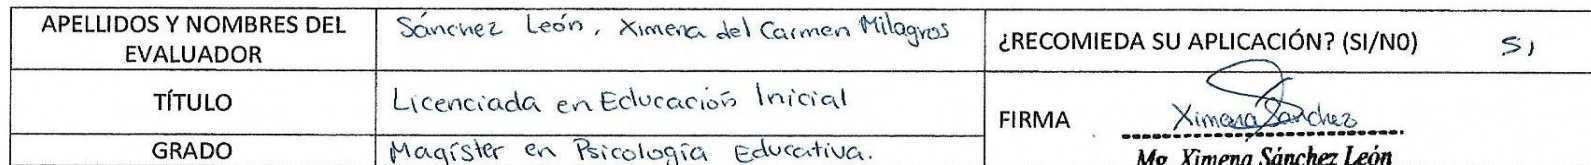 APELLIDOS Y NOMBRES DEL
EVALUADOR
Sánchez León, Ximena del Carmen Milagros
¿RECOMIEDA SU APLICACIÓN? (SI/N0) SI
TÍTULO
Licenciada en Educación Inicial
FIRMA
Ximena Sanchez
Mg. Ximena Sánchez León
GRADO
Magíster en Psicología Educativa.